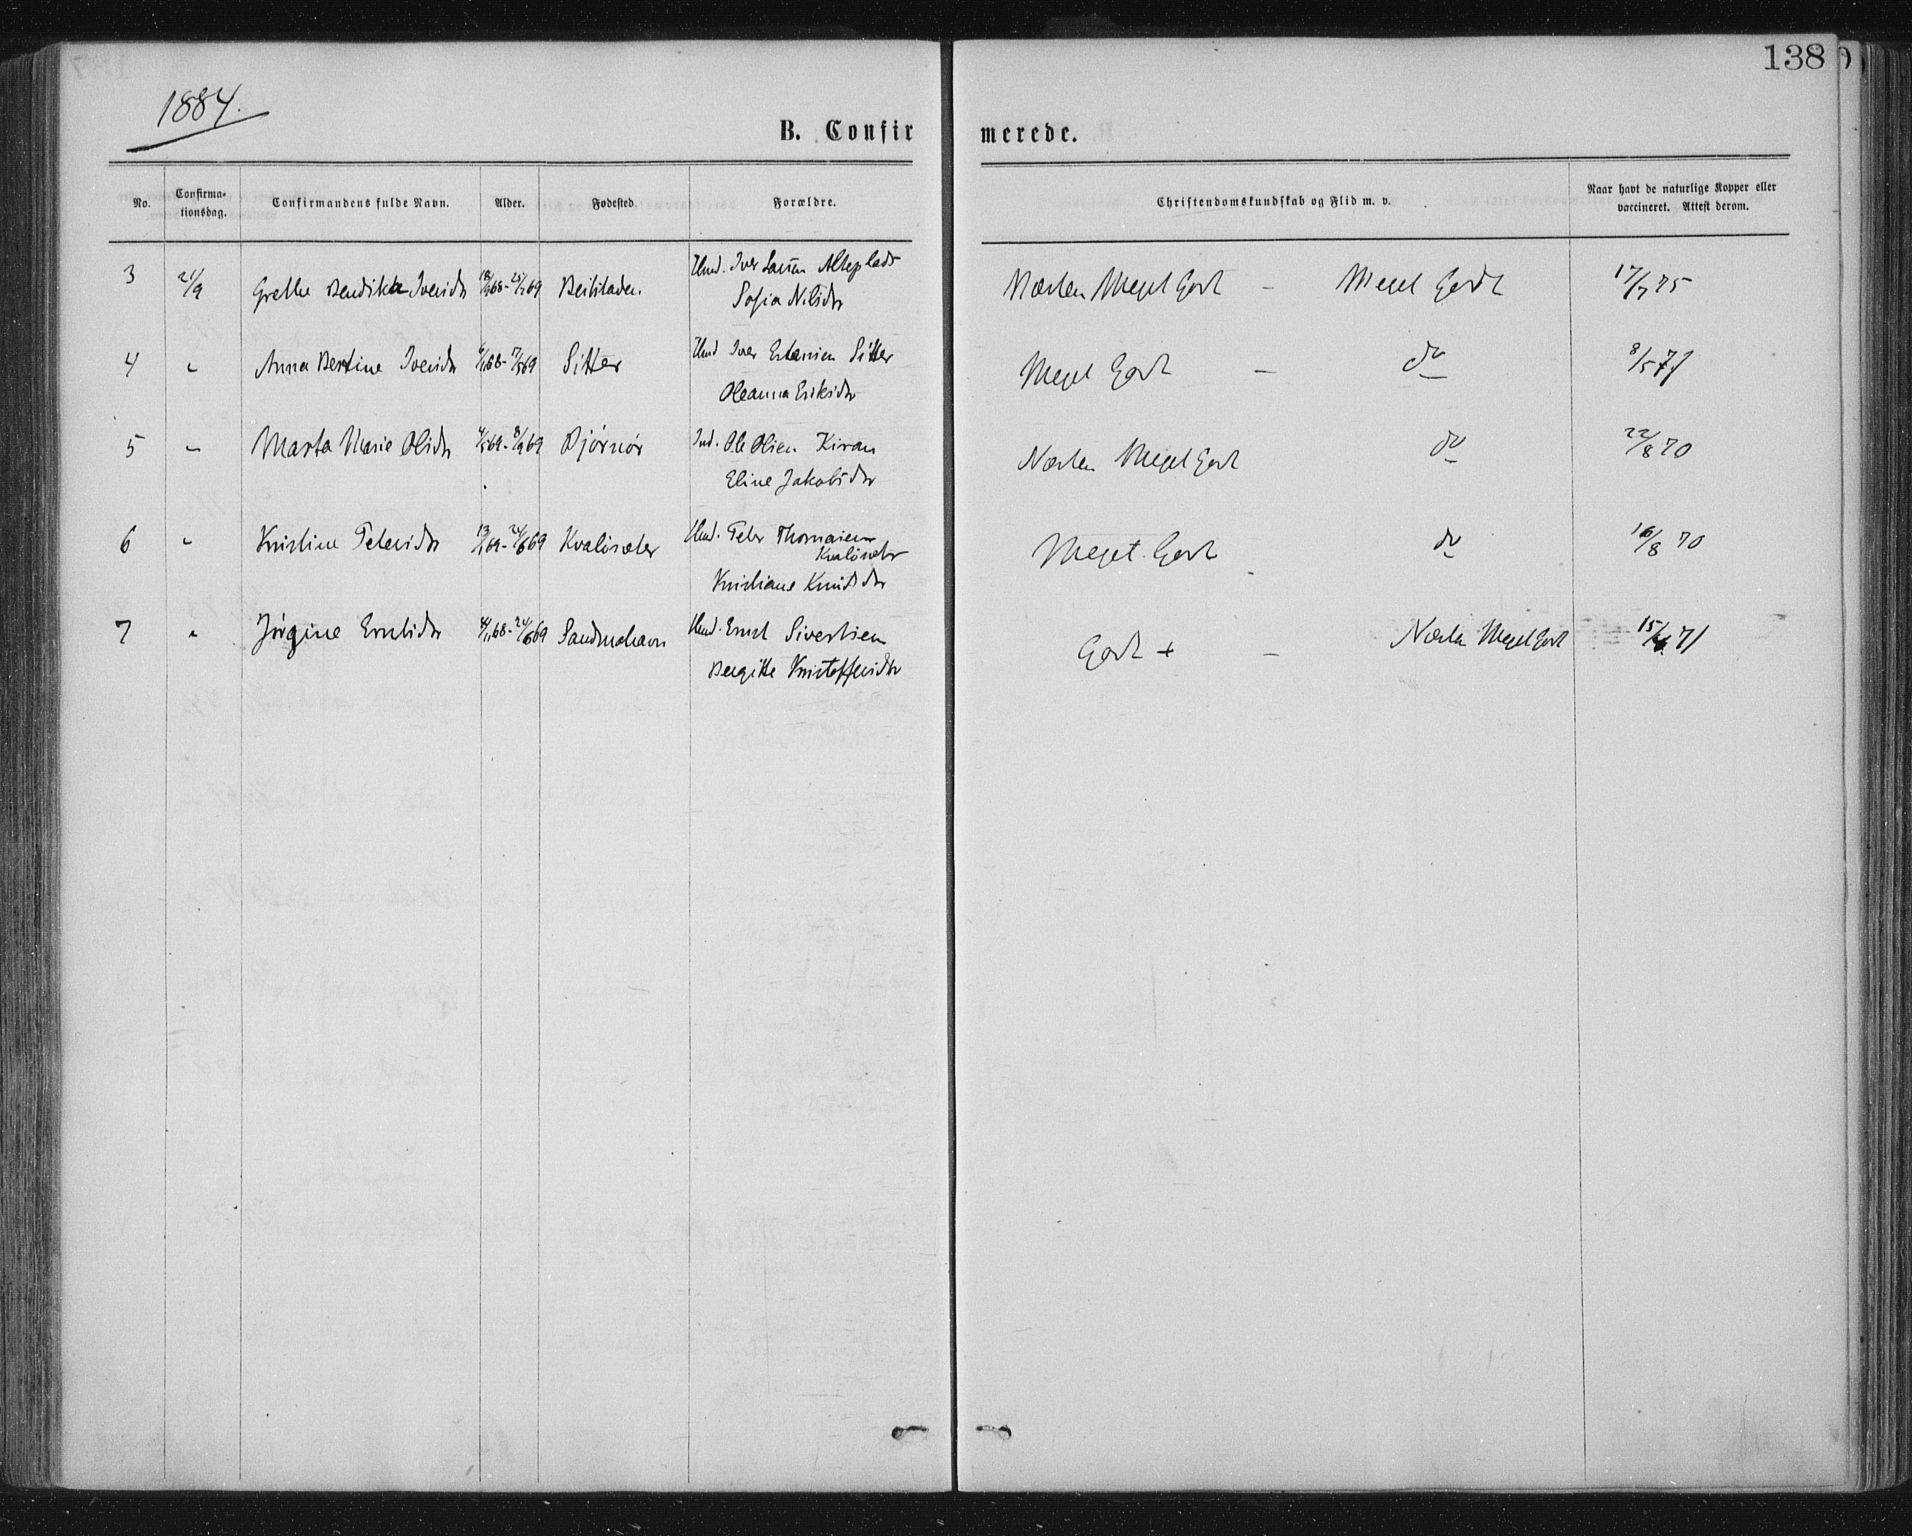 138
1884.
B. Confir merede.
No. Confirma-tionsdag. Confirmandens fulde Navn. Alder. Fødested. Forældre. Christendomskundskab og Flid m. v. Naar havt de naturlige Kopper eller vaccineret. Attest derom.
3 21/9 Grethe Bendikte Iversdr 25/7 69 Beitstaden. Hmd. Iver Larsen
Sofia Nilsdr Næsten Meget Godt – Meget Godt 17/7 75
4 " Anna Bertine Iversdr 69 Sitter Hmd Iver Estensen Sitter
Oleanna Eriksdr Meget Godt – do 8/5 71
5 " Marta Marie Olsdr 69 Bjørnør Ind. Ole Olsen Kiran
Eline Jakobsdr Næsten Meget Godt do 22/8 70
6 " Kristine Petersdr 69 Kvaløsæter Hmd. Peter Thomasen
Kvaløsæter
Kristiane Knudsdr Meget Godt – do 16/8 70
7 " Jørgine Ernstdr 4/11 68 - 24/6 69 Sandmohavn Hmd. Ernst Sivertsen
Bergitte Kristoffersdr Godt + – Næsten Meget Godt 71